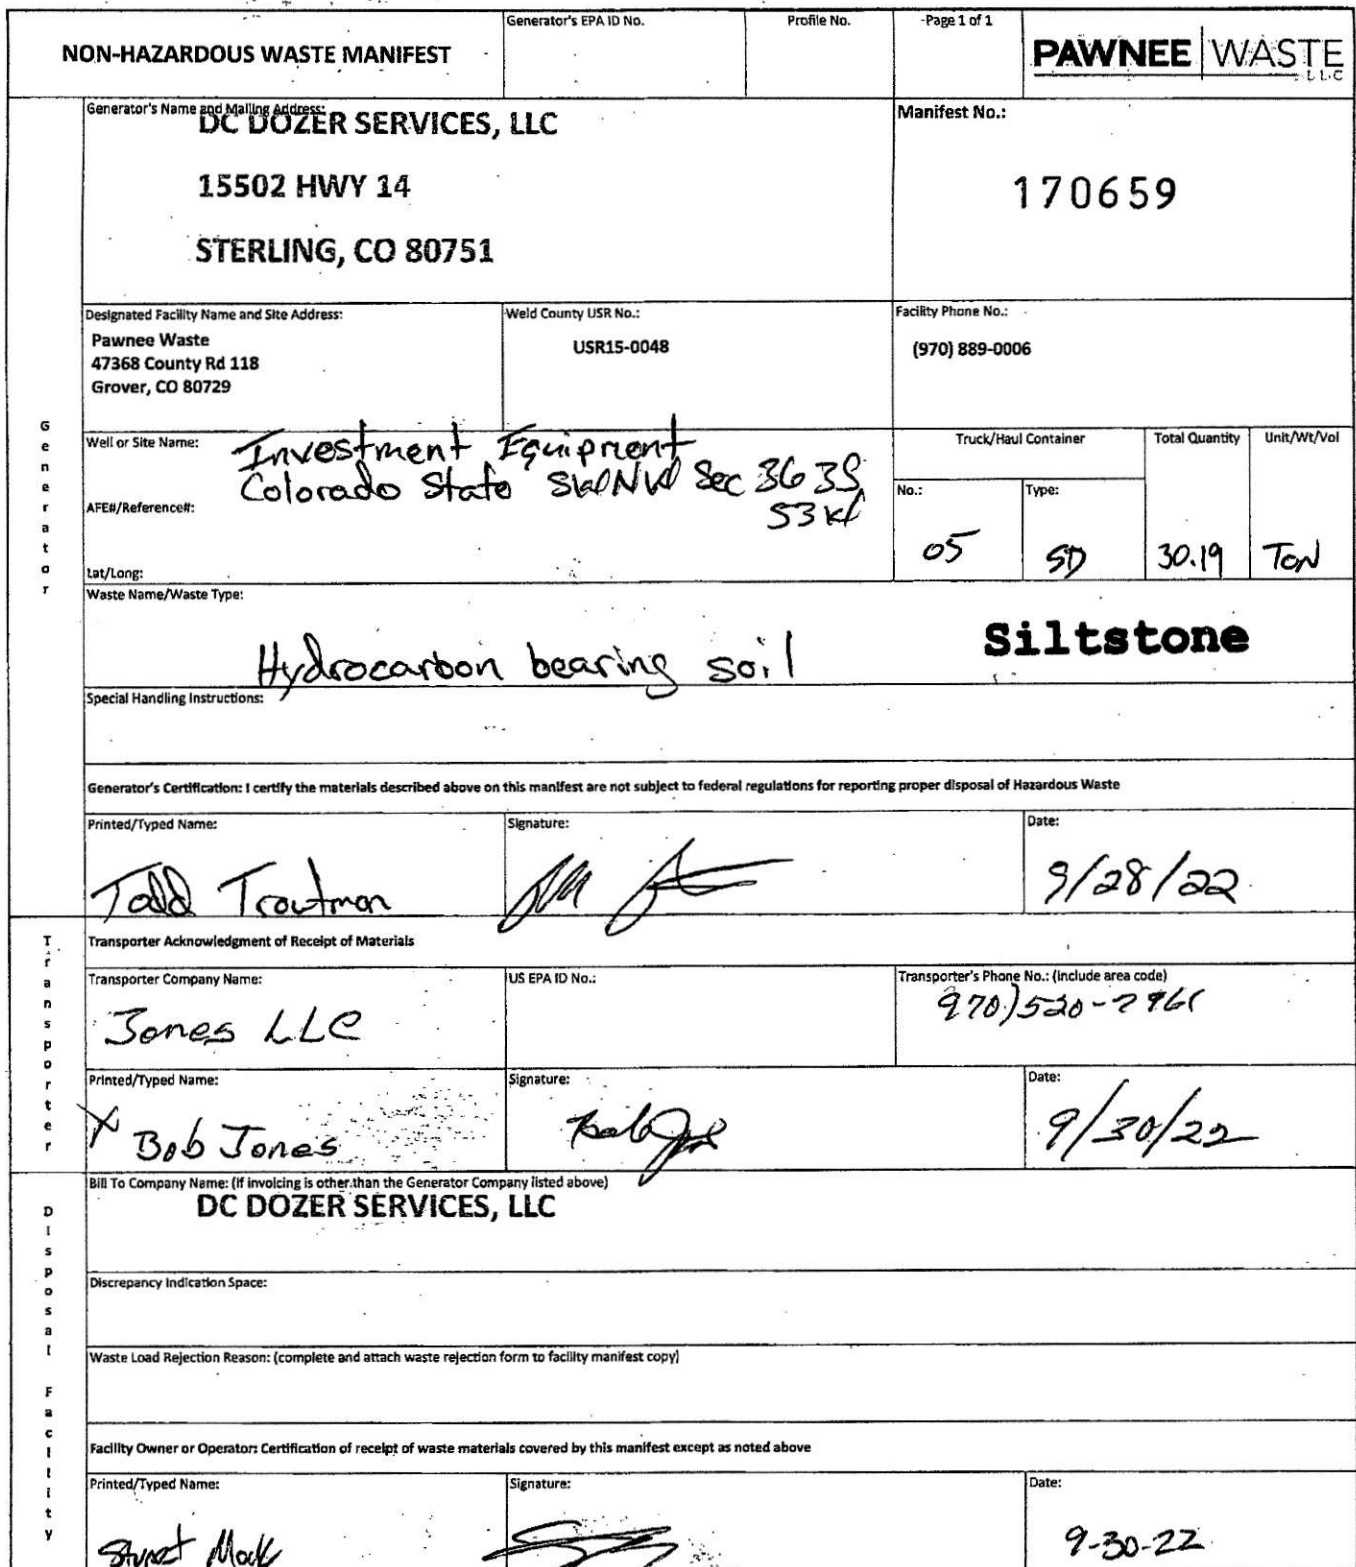 NON-HAZARDOUS WASTE MANIFEST
Generator's EPA ID No.
Profile No.
Page 1 of 1
PAWNEE WASTE
LLC
Generator's Name and Mailing Address:
DC DOZER SERVICES, LLC
15502 HWY 14
STERLING, CO 80751
Manifest No.:
170659
Designated Facility Name and Site Address:
Pawnee Waste
47368 County Rd 118
Grover, CO 80729
Weld County USR No.:
USR15-0048
Facility Phone No.:
(970) 889-0006
Generator
Well or Site Name:
Investment Equipment
Colorado State SWNW Sec 36 3S
53W
AFE#/Reference#:
Lat/Long:
Truck/Haul Container
No.:
05
Type:
SD
Total Quantity
30.19
Unit/Wt/Vol
TON
Waste Name/Waste Type:
Hydrocarbon bearing soil
Siltstone
Special Handling Instructions:
Generator's Certification: I certify the materials described above on this manifest are not subject to federal regulations for reporting proper disposal of Hazardous Waste
Printed/Typed Name:
Todd Troutman
Signature:
Date:
9/28/22
Transporter
Transporter Acknowledgment of Receipt of Materials
Transporter Company Name:
Jones LLC
US EPA ID No.:
Transporter's Phone No.: (include area code)
970)520-2961
Printed/Typed Name:
X Bob Jones
Signature:
Bob Jones
Date:
9/30/22
Disposal Facility
Bill To Company Name: (If invoicing is other than the Generator Company listed above)
DC DOZER SERVICES, LLC
Discrepancy Indication Space:
Waste Load Rejection Reason: (complete and attach waste rejection form to facility manifest copy)
Facility Owner or Operator: Certification of receipt of waste materials covered by this manifest except as noted above
Printed/Typed Name:
Mock
Signature:
Date:
9-30-22